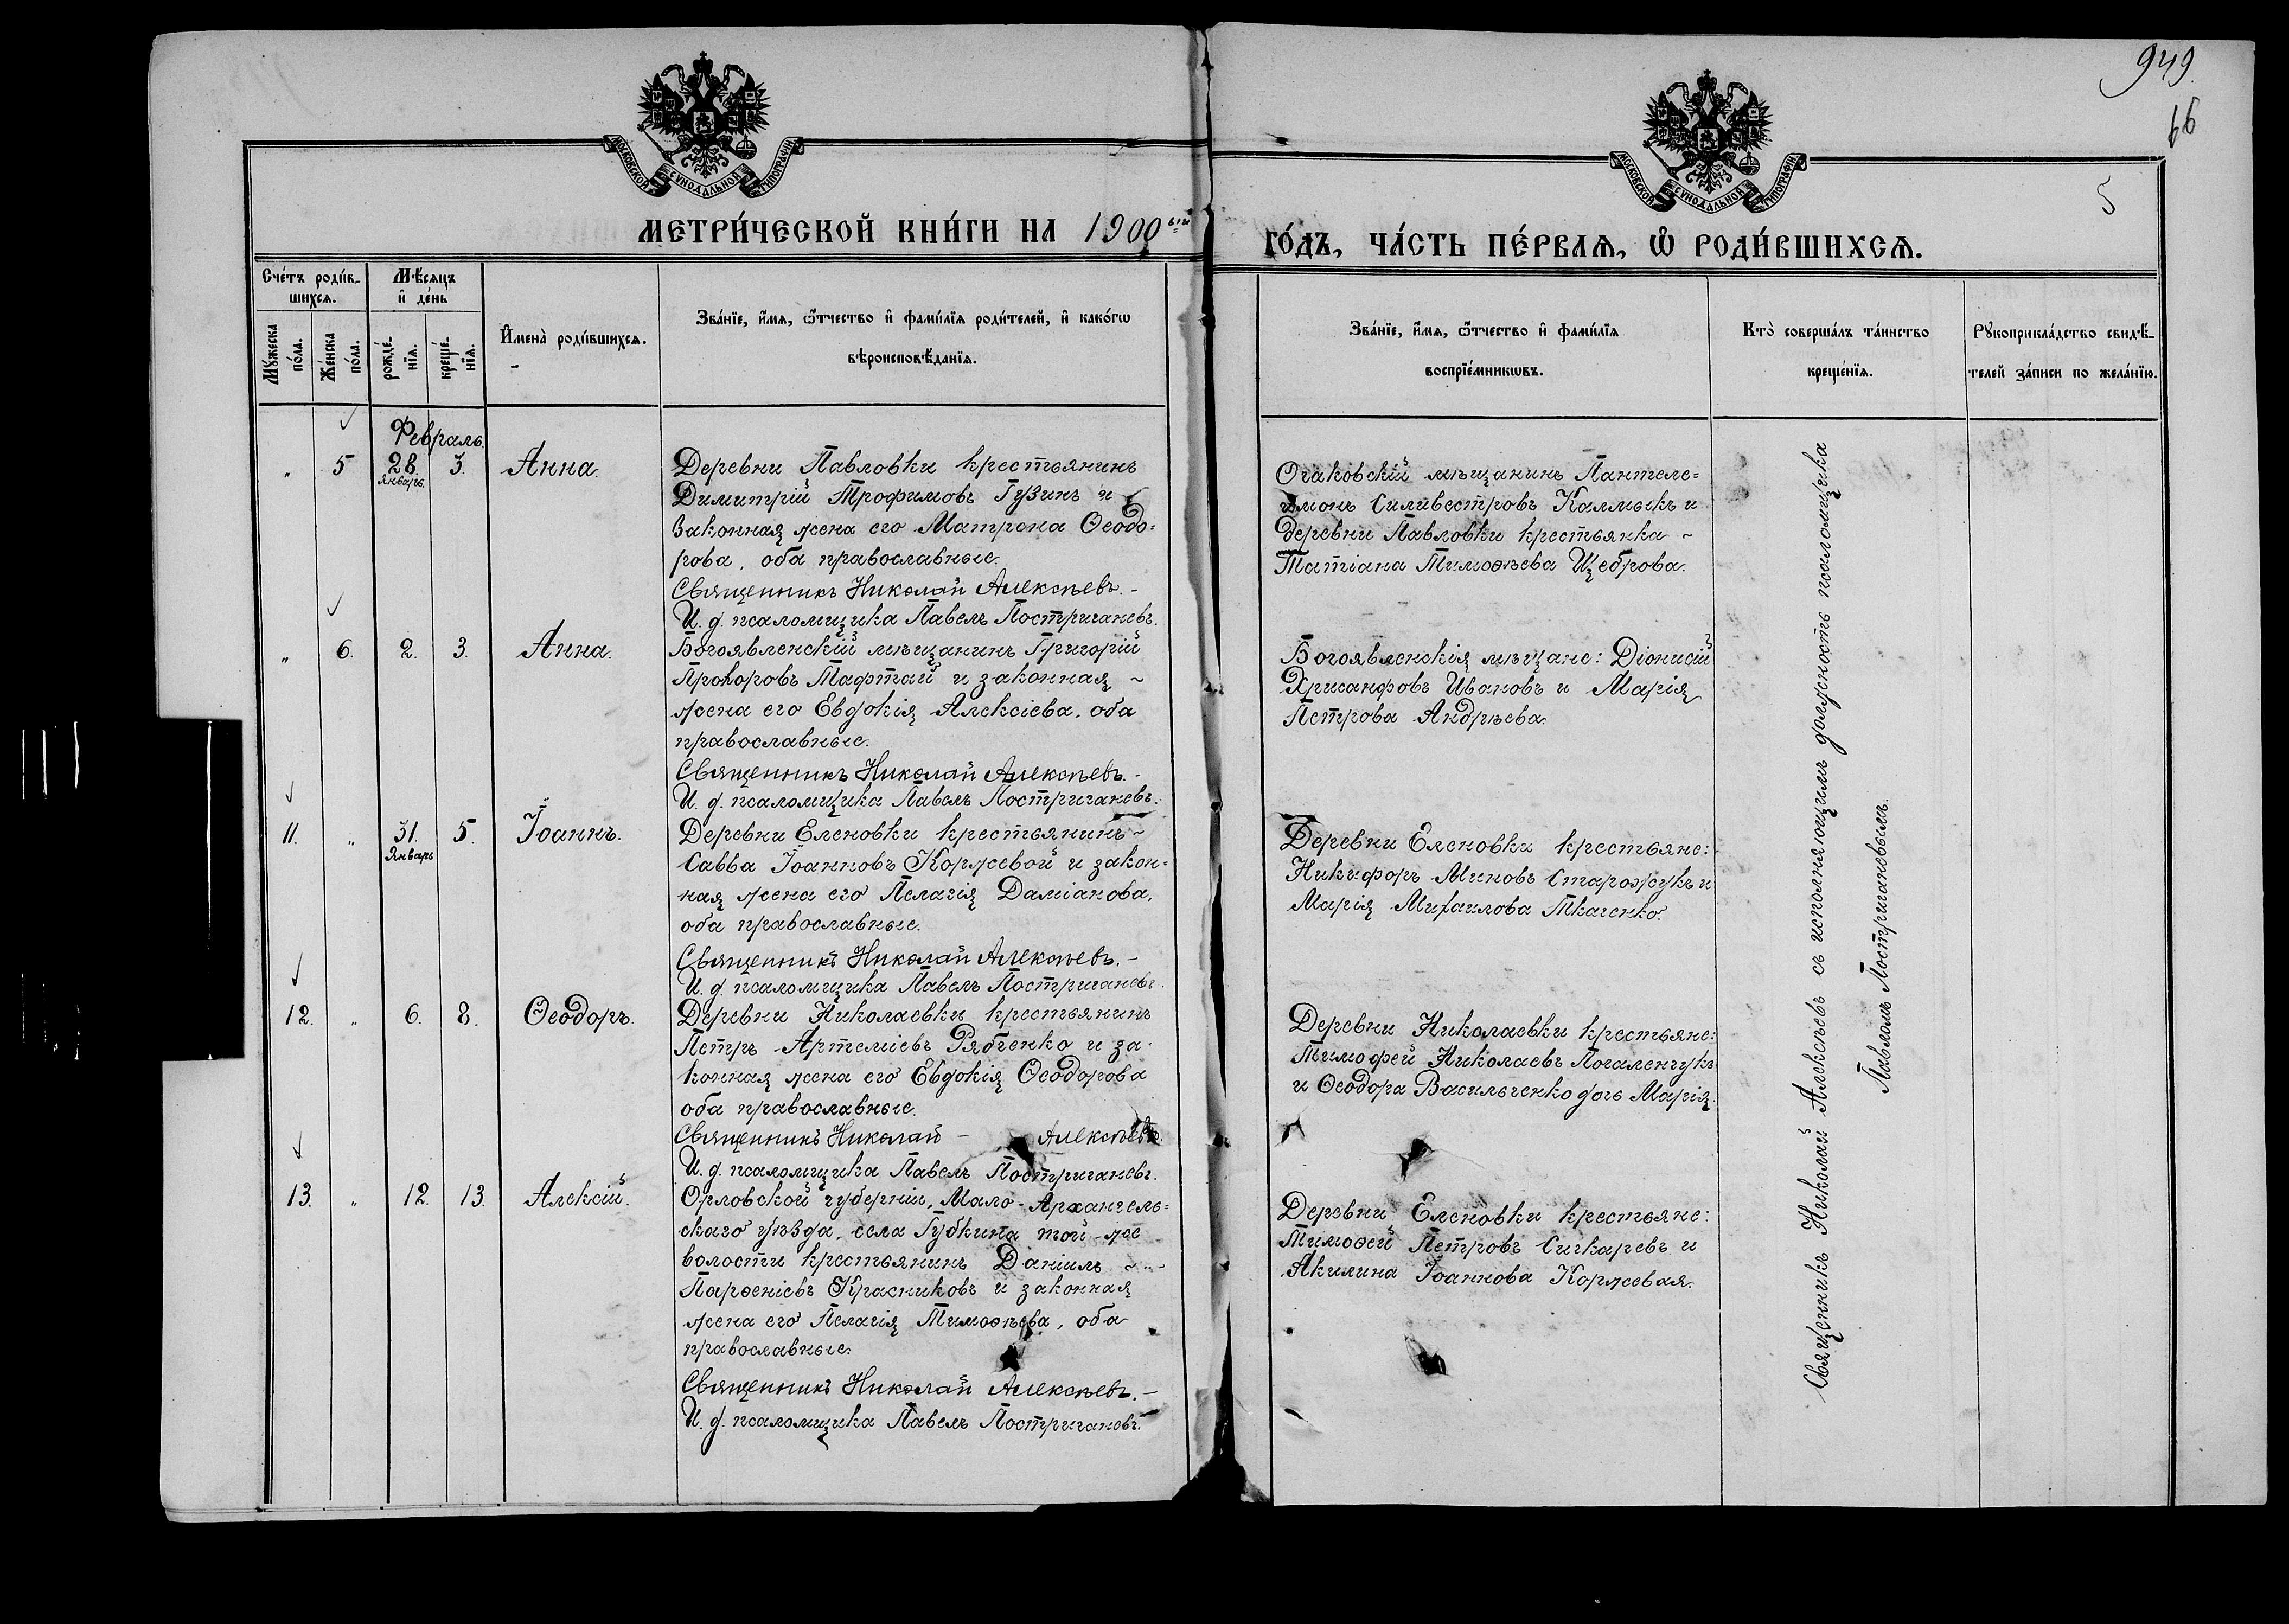 949
66
5
МОСКОВСКОЙ СѴНОДАЛЬНОЙ ТИПОГРАФІИ
МОСКОВСКОЙ СѴНОДАЛЬНОЙ ТИПОГРАФІИ
МЕТРИ́ЧЕСКОЙ КНИ́ГИ НА 1900 ый
ГО́ДЪ, ЧА́СТЬ ПЕ́РВАѦ, Ѿ РОДИ́ВШИХСѦ.
Сче́тъ роди́в-
шихсѧ.
Мѣ́сѧцъ
и҆ де́нь
Мꙋ́жеска
по́ла.
Же́нска
по́ла.
рожде́-
нїѧ.
креще́-
нїѧ.
И҆мена̀ роди́вшихсѧ.
Зва́нїе, и҆́мѧ, ѻ҆́тчество и҆ фами́лїѧ роди́телей, и҆ како́гѡ
вѣроисповѣ́данїѧ.
Зва́нїе, и҆́мѧ, ѻ҆́тчество и҆ фами́лїѧ
воспрїе́мникѡвъ.
Кто̀ соверша́лъ та́инство
креще́нїѧ.
Рꙋкоприкла́дство свидѣ́-
телей за́писи по жела́нїю.
Февраль.
" 5 28. 3. Анна.
январь.
Деревни Павловки крестьянинъ
Димитрій Трофимовъ Гузинъ и
законная жена его Матрона Ѳеодо=
рова, оба православные.
Священникъ Николай Алексѣевъ.-
И. д. псаломщика Павелъ Постриганевъ.
Очаковскій мѣщанинъ Пантеле=
имонъ Силивестровъ Калмыкъ и
деревни Павловки крестьянка ~
Татіана Тимоѳѣева Щеброва.
" 6. 2. 3. Анна.
Богоявленскій мѣщанинъ Григорій
Прохоровъ Тафтай и законная ~
жена его Евдокія Алексіева, оба
православные.
Священникъ Николай Алексѣевъ.-
И. д. псаломщика Павелъ Постриганевъ.
Богоявленскія мѣщане: Діонисій
Хрисанфовъ Ивановъ и Марія
Петрова Андрѣева.
11. " 31. 5. Іоаннъ.
Январь
Деревни Еленовки крестьянинъ ~
Савва Іоанновъ Коржевой и закон=
ная жена его Пелагія Даміанова,
оба православные.
Священникъ Николай Алексѣевъ.-
И. д. псаломщика Павелъ Постриганевъ.
Деревни Еленовки крестьяне:
Никифоръ Миновъ Старожукъ и
Марія Михаилова Ткаченко.
12. " 6. 8. Ѳеодоръ.
Деревни Николаевки крестьянинъ
Петръ Артеміевъ Рябченко и за-
конная жена его Евдокія Ѳеодорова
оба православные.
Священникъ Николай - Алексѣевъ.
И. д. псаломщика Павелъ Постриганевъ.
Деревни Николаевки крестьяне:
Тимофей Николаевъ Погаленчукъ
и Ѳеодора Васильченко дочь Марія.
13. " 12. 13. Алексій.
Орловской губерніи, Мало-Архангель=
скаго уѣзда, села Губкина той-же
волости крестьянинъ Даніилъ ~
Парѳеніевъ Красниковъ и законная
жена его Пелагія Тимоѳѣева, оба
православные.
Священникъ Николай Алексѣевъ.-
И. д. псаломщика Павелъ Постриганевъ.
Деревни Еленовки крестьяне:
Тимоѳей Петровъ Сичкаревъ и
Акилина Іоаннова Коржевая.
Священникъ Николай Алексѣевъ съ исполняющимъ должность псаломщика
Павломъ Постриганевымъ.